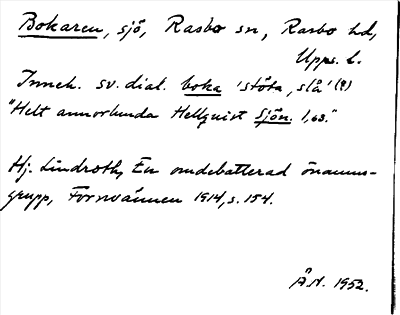 Bokaren, sjö, Rasbo sn, Rasbo hd,
Upps. l.
Inneh. sv. dial. boka 'stöta, slå' (?)
"Helt annorlunda Hellquist Sjön. 1,63."
Hj. Lindroth, En omdebatterad önamns-
grupp, Fornvännen 1914, s. 154.
Å.N. 1952.